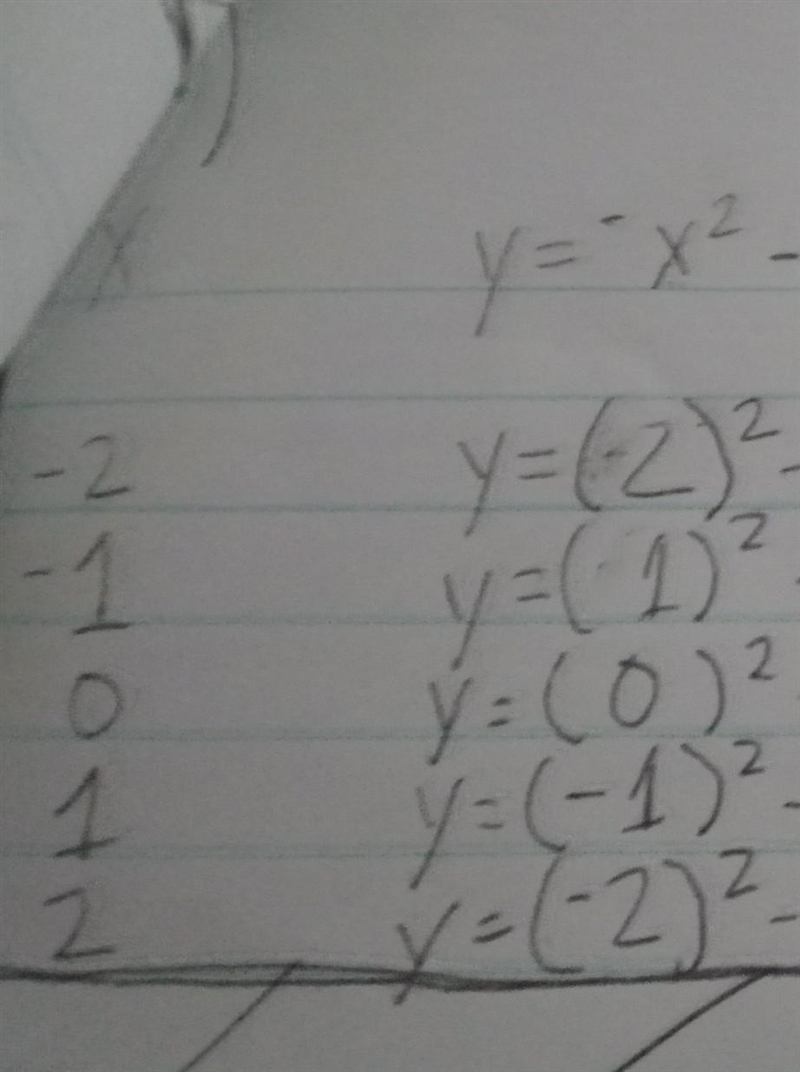 x y = -x² -
-2 y = (-2)² -
-1 y = (-1)² -
0 y = (0)²
1 y = (-1)² -
2 y = (-2)² -